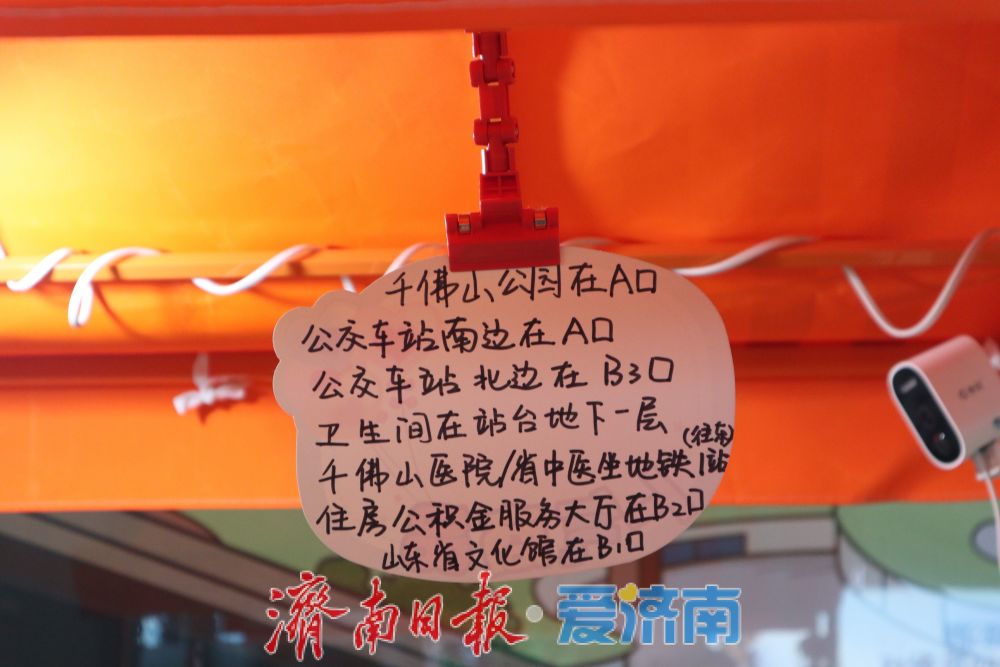 千佛山公园在A口
公交车站南边在A口
公交车站北边在B3口
卫生间在站台地下一层
(往东)
千佛山医院/省中医坐地铁1站
住房公积金服务大厅在B2口
山东省文化馆在B1口
濟南日報·爱济南